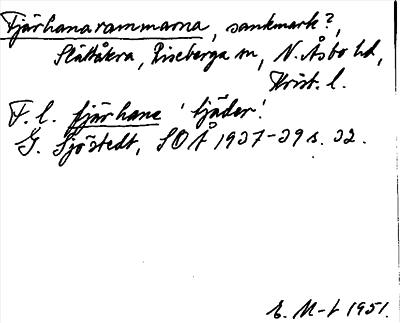 Tjärhanarammarna, sankmark?,
Slättåkra, Riseberga sn, N. Åsbo hd,
Krist. l.
F. l. tjärhane 'tjäder'.
G. Sjöstedt, SOÅ 1937-39 s. 32.
E. M-t 1951.